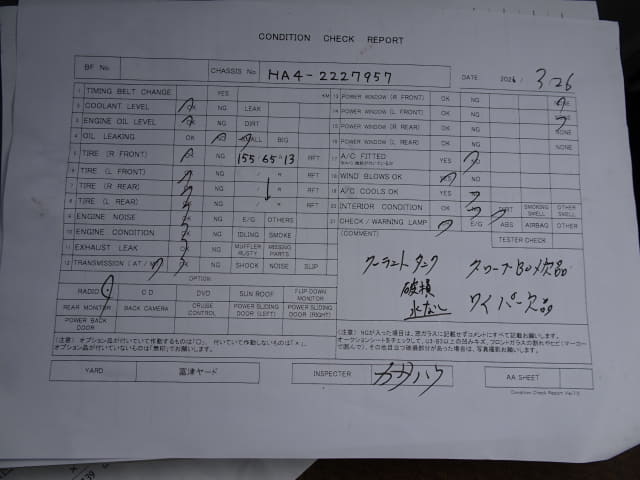 CONDITION CHECK REPORT
BF No. CHASSIS No HA4-2227957 DATE 2026 / 3.26
1 TIMING BELT CHANGE YES KM
2 COOLANT LEVEL OK NG LEAK
3 ENGINE OIL LEVEL OK NG DIRT
4 OIL LEAKING OK NG SMALL BIG
5 TIRE (R FRONT) NG 155 65 13 RFT
6 TIRE (L FRONT) NG / R RFT
7 TIRE (R REAR) NG / R RFT
8 TIRE (L REAR) NG / R RFT
9 ENGINE NOISE OK NG E/G OTHERS
10 ENGINE CONDITION OK NG IDLING SMOKE
11 EXHAUST LEAK OK NG MUFFLER RUSTY MISSING PARTS
12 TRANSMISSION (AT / M) NG SHOCK NOISE SLIP
OPTION
RADIO CD DVD SUN ROOF FLIP DOWN MONITOR
REAR MONITOR BACK CAMERA CRUISE CONTROL POWER SLIDING DOOR (LEFT) POWER SLIDING DOOR (RIGHT)
POWER BACK DOOR
(注意) オプション品が付いていて作動するものは「〇」、付いていて作動しないものは「×」、
オプション品が付いていないものは「無印」でお願いします。
13 POWER WINDOW (R FRONT) OK NG NONE
14 POWER WINDOW (L FRONT) OK NG
15 POWER WINDOW (R REAR) OK NG NONE
16 POWER WINDOW (L REAR) OK NG NONE
17 A/C FITTED YES NO
18 WIND BLOWS OK YES NO
19 A/C COOLS OK YES NO
20 INTERIOR CONDITION OK DIRT SMOKING SMELL OTHER SMELL
21 CHECK / WARNING LAMP E/G ABS AIRBAG OTHER
(COMMENT) TESTER CHECK
クーラントタンク
破損
水なし
ワイパー欠品
(注意) NGが入った場合は、窓ガラスに記載せずコメントにすべて記載お願いします。
YARD 富津ヤード INSPECTER AA SHEET
Condition Check Report Ver.7.0